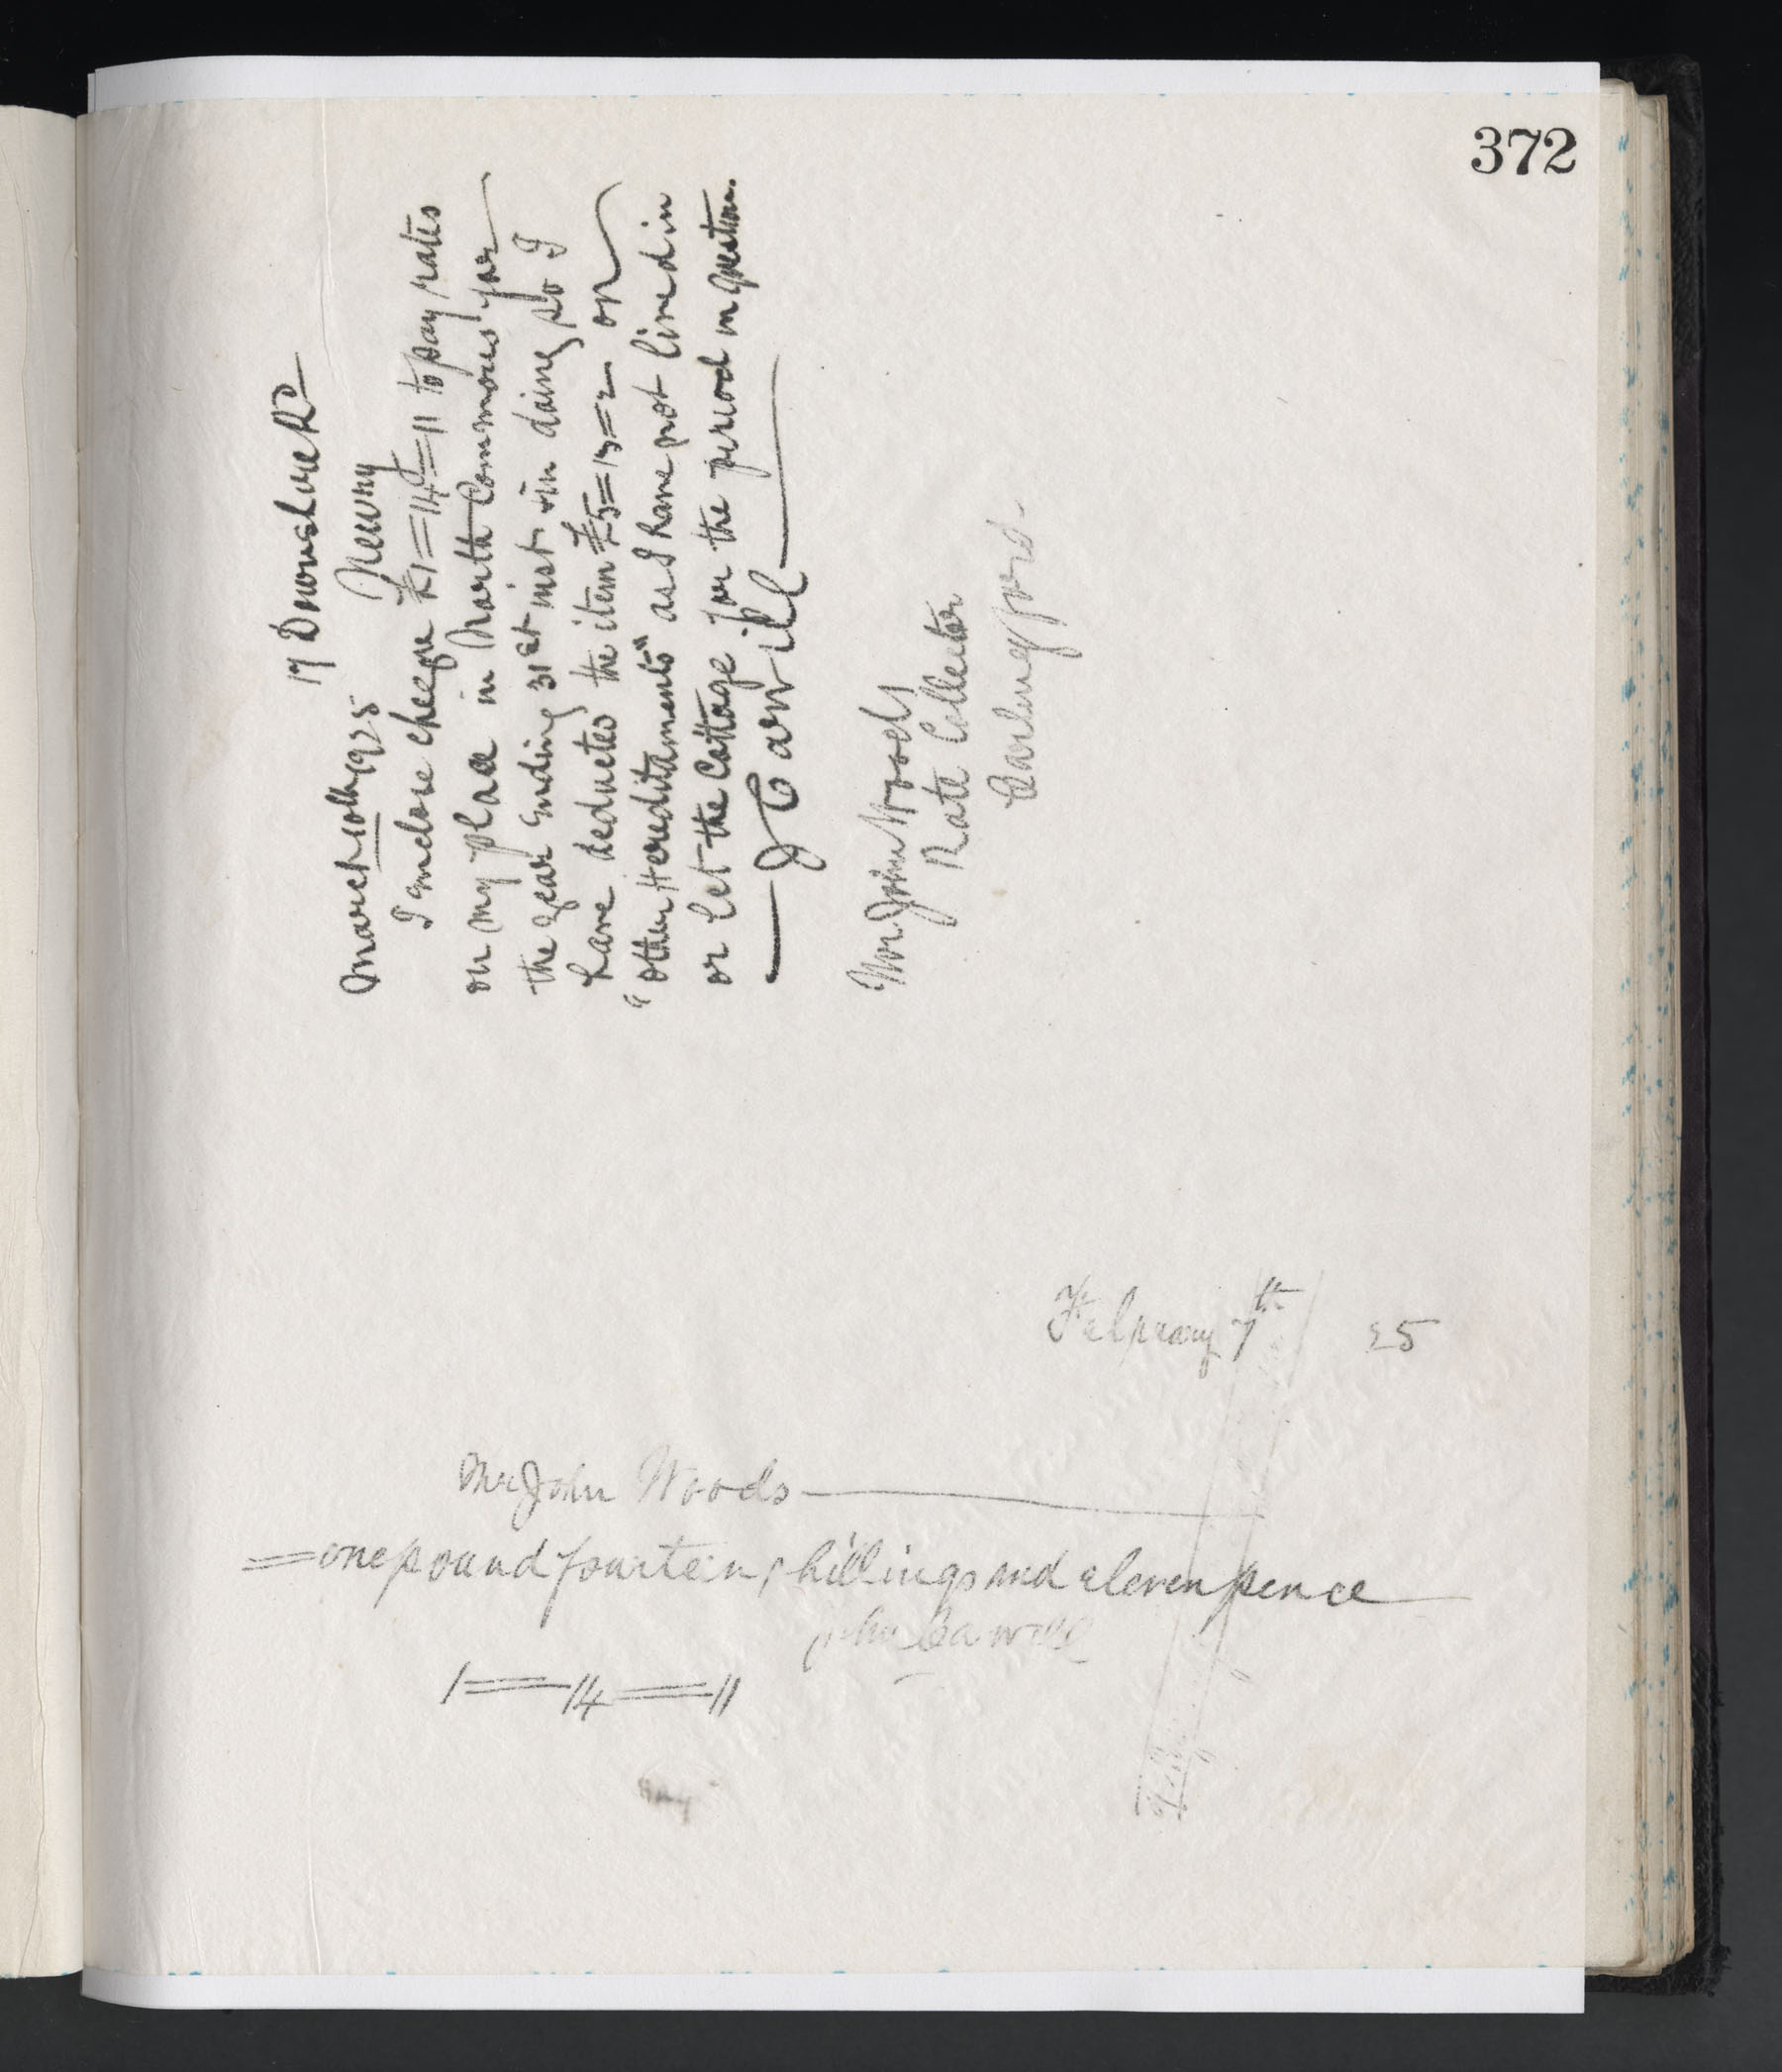 372
17 Downshire Rd
Newry
March 10th 1925
I enclose cheque £1=14=11 to pay rates
on my place in North Commons for
the year ending 31st inst. in doing so I
have deducted the item £5=13=2 on
"other Hereditaments" as I have not lived in
or let the Cottage for the period in question.
J Carvill
Mr John Woods
Rate Collector
Carlingford
February 7th 25
Mr John Woods
=one pound fourteen shillings and eleven pence
John Carvill
1=14=11